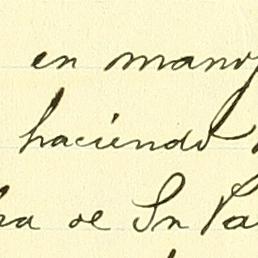 en mano
haciendo
ha de Sn Pa